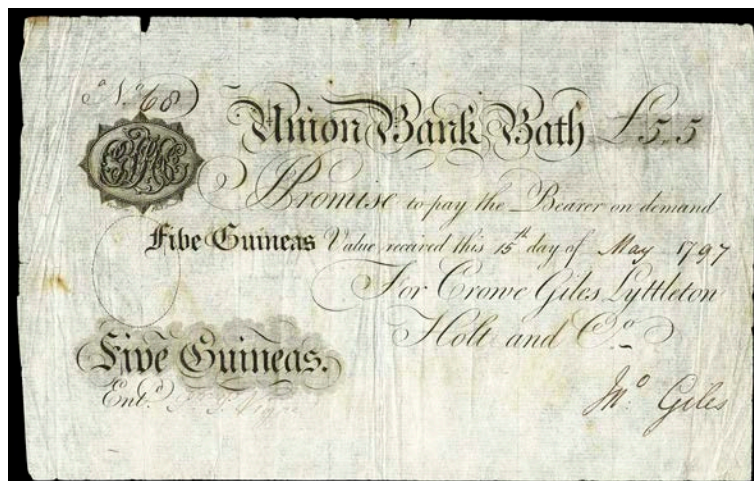 No. 68
Union Bank Bath £5,,5
I Promise to pay the Bearer on demand
Five Guineas Value received this 15th day of May 1797
For Crowe Giles Lyttleton
Holt and Co.
Five Guineas.
Entd.
Jno. Giles